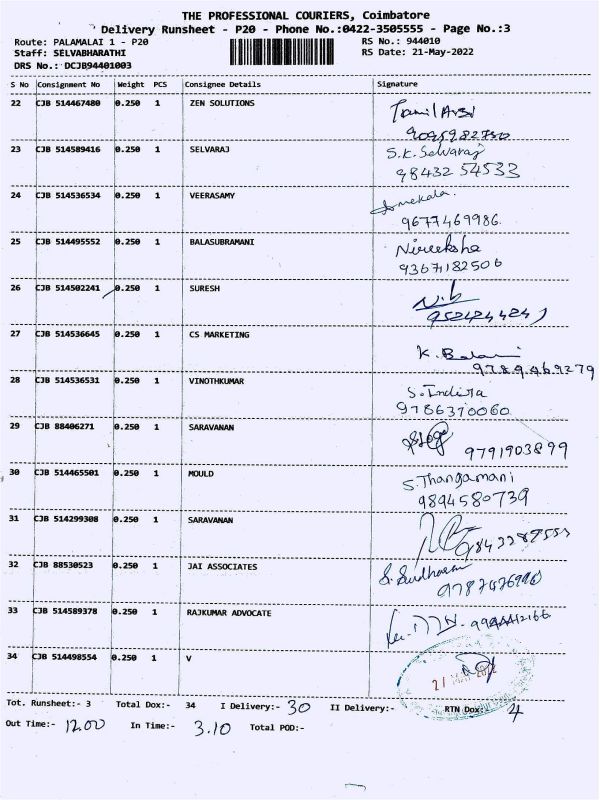 THE PROFESSIONAL COURIERS, Coimbatore
Delivery Runsheet - P20 - Phone No.:0422-3505555 - Page No.:3
Route: PALAMALAI 1 - P20 RS No.: 944010
Staff: SELVABHARATHI RS Date: 21-May-2022
DRS No.: DCJB94401003
S No Consignment No Weight PCS Consignee Details Signature
22 CJB 514467480 0.250 1 ZEN SOLUTIONS Tamil Arsi
9095982730
23 CJB 514589416 0.250 1 SELVARAJ S.K. Selvaraj
98432 54533
24 CJB 514536534 0.250 1 VEERASAMY
9677469986
25 CJB 514495552 0.250 1 BALASUBRAMANI Nireeksha
9367182506
26 CJB 514502241 0.250 1 SURESH
27 CJB 514536645 0.250 1 CS MARKETING K.
9789469279
28 CJB 514536531 0.250 1 VINOTHKUMAR S. Indira
9786370060
29 CJB 88406271 0.250 1 SARAVANAN
9791903899
30 CJB 514465501 0.250 1 MOULD S. Thangamani
9894580739
31 CJB 514299308 0.250 1 SARAVANAN
32 CJB 88530523 0.250 1 JAI ASSOCIATES
33 CJB 514589378 0.250 1 RAJKUMAR ADVOCATE
34 CJB 514498554 0.250 1 V
Tot. Runsheet:- 3 Total Dox:- 34 I Delivery:- 30 II Delivery:- RTN Dox:- 4
Out Time:- 12.00 In Time:- 3.10 Total POD:-